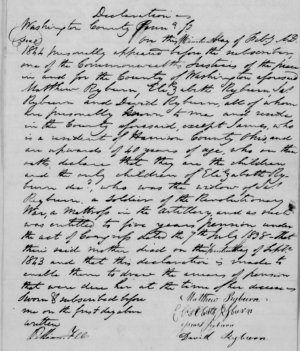 Declaration
Washington County
On this Ninth day of Feby. AD
1844 personally appeared before the subscriber
one of the Commonwealths Justices of the peace
in and for the County of Washington aforesaid
Matthew Ryburn, Elizabeth Ryburn,
Ryburn and David Ryburn, all of whom
are personally known to me and reside
in the County aforesaid, except James, who
is a resident of Harrison County Ohio and
are upwards of 40 years of age, who on their
oath, declare that they are the children
and the only children of Elizabeth Ry-
burn decd, who was the widow of
Ryburn, a Soldier of the Revolutionary
War, a Matross in the Artillery, and as such
was entitled to five years pension under
the act of Congress dated the 7th July 1838, that
their said mother died on the of Septr
1843 and that this declaration is made to
enable them to draw the arrears of pension
that were due her at the time of her decease
Sworn & subscribed before
me on the first day above
written
Matthew Ryburn
Elizabeth Ryburn
James Ryburn
David Ryburn